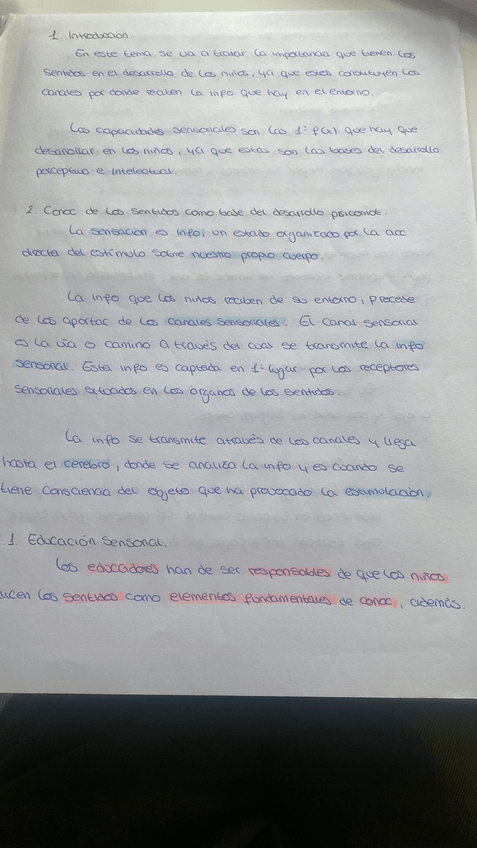 1. Introducción.
En este tema se va a tratar la importancia que tienen los
sentidos en el desarrollo de los niños, ya que estos constituyen los
canales por donde reciben la info que hay en el entorno.
Las capacidades sensoriales son las 1ª que hay que
desarrollar en los niños, ya que estas son las bases del desarrollo
perceptivo e intelectual.
2 Conoc de los sentidos como base del desarrollo psicomot.
La sensación es info, un estado organizado por la acc
directa del estímulo sobre nuestro propio cuerpo.
La info que los niños reciben de su entorno, procede
de las aportac de los canales sensoriales. El canal sensorial
es la vía o camino a través del cual se transmite la info
sensorial. Esta info es captada en 1º lugar por los receptores
sensoriales situados en los órganos de los sentidos.
La info se transmite a través de los canales y llega
hasta el cerebro, donde se analiza la info y es cuando se
tiene consciencia del objeto que ha provocado la estimulación.
1. Educación Sensorial.
Los educadores han de ser responsables de que los niños
ucen los sentidos como elementos fundamentales de conoc, además.